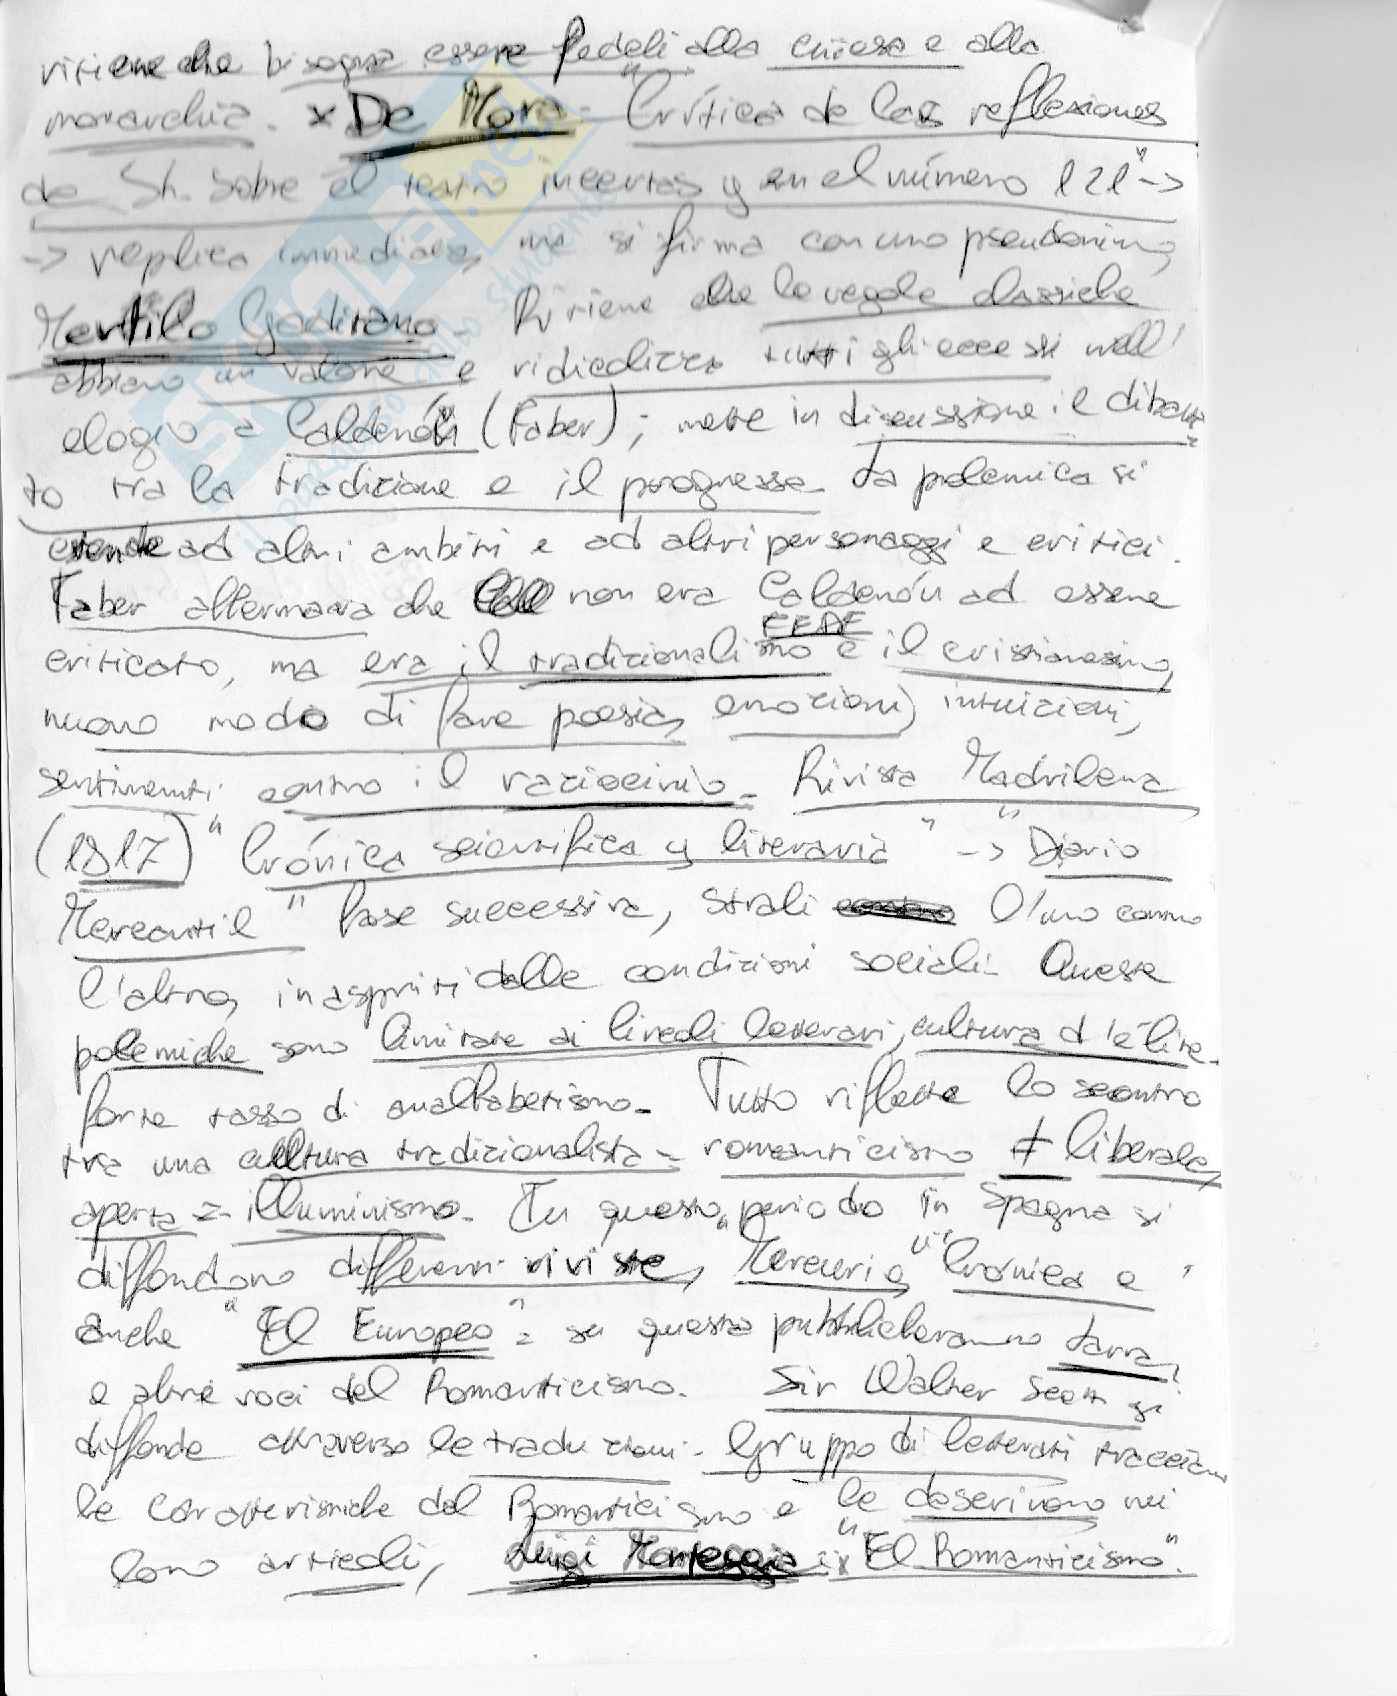 ritiene che bisogna essere fedeli alla chiesa e alla
monarchia. x De Mora - "Crítica de las reflexiones
de Sh. sobre el teatro insertas y en el número 121" ->
-> replica immediata, ma si firma con uno pseudonimo,
Mertilo Gaditano. Ritiene che le regole classiche
abbiano un valore e ridicolizza tutti gli eccessi nell'
elogio a Calderón (Faber); mette in discussione il dibatti
to tra la tradizione e il progresso. La polemica si
estende ad altri ambiti e ad altri personaggi e critici.
Faber affermava che non era Calderón ad essere
FEDE
criticato, ma era il tradizionalismo e il cristianesimo,
nuovo modo di fare poesia, emozioni, intuizioni,
sentimenti contro il raziocinio. Rivista Madrilena
(1817) "Crónica scientifica y literaria" -> "Diario
Mercantil" Fase successiva, strali l'uno contro
l'altro, inaspriti dalle condizioni sociali. Queste
polemiche sono limitate ai livelli letterari, cultura d'élite.
forte tasso di analfabetismo. Tutto riflette lo scontro
tra una cultura tradizionalista = romanticismo ≠ liberale,
aperta = illuminismo. In questo periodo in Spagna si
diffondono differenti riviste, "Mercurio", "Crónica e
anche "El Europeo" = su questa pubblicheranno Larra,
e altre voci del Romanticismo. Sir Walter Scott si
diffonde attraverso le traduzioni. Gruppo di letterati tracciano
le caratteristiche del Romanticismo e le descrivono nei
loro articoli, Luigi Monteggia in "El Romanticismo".